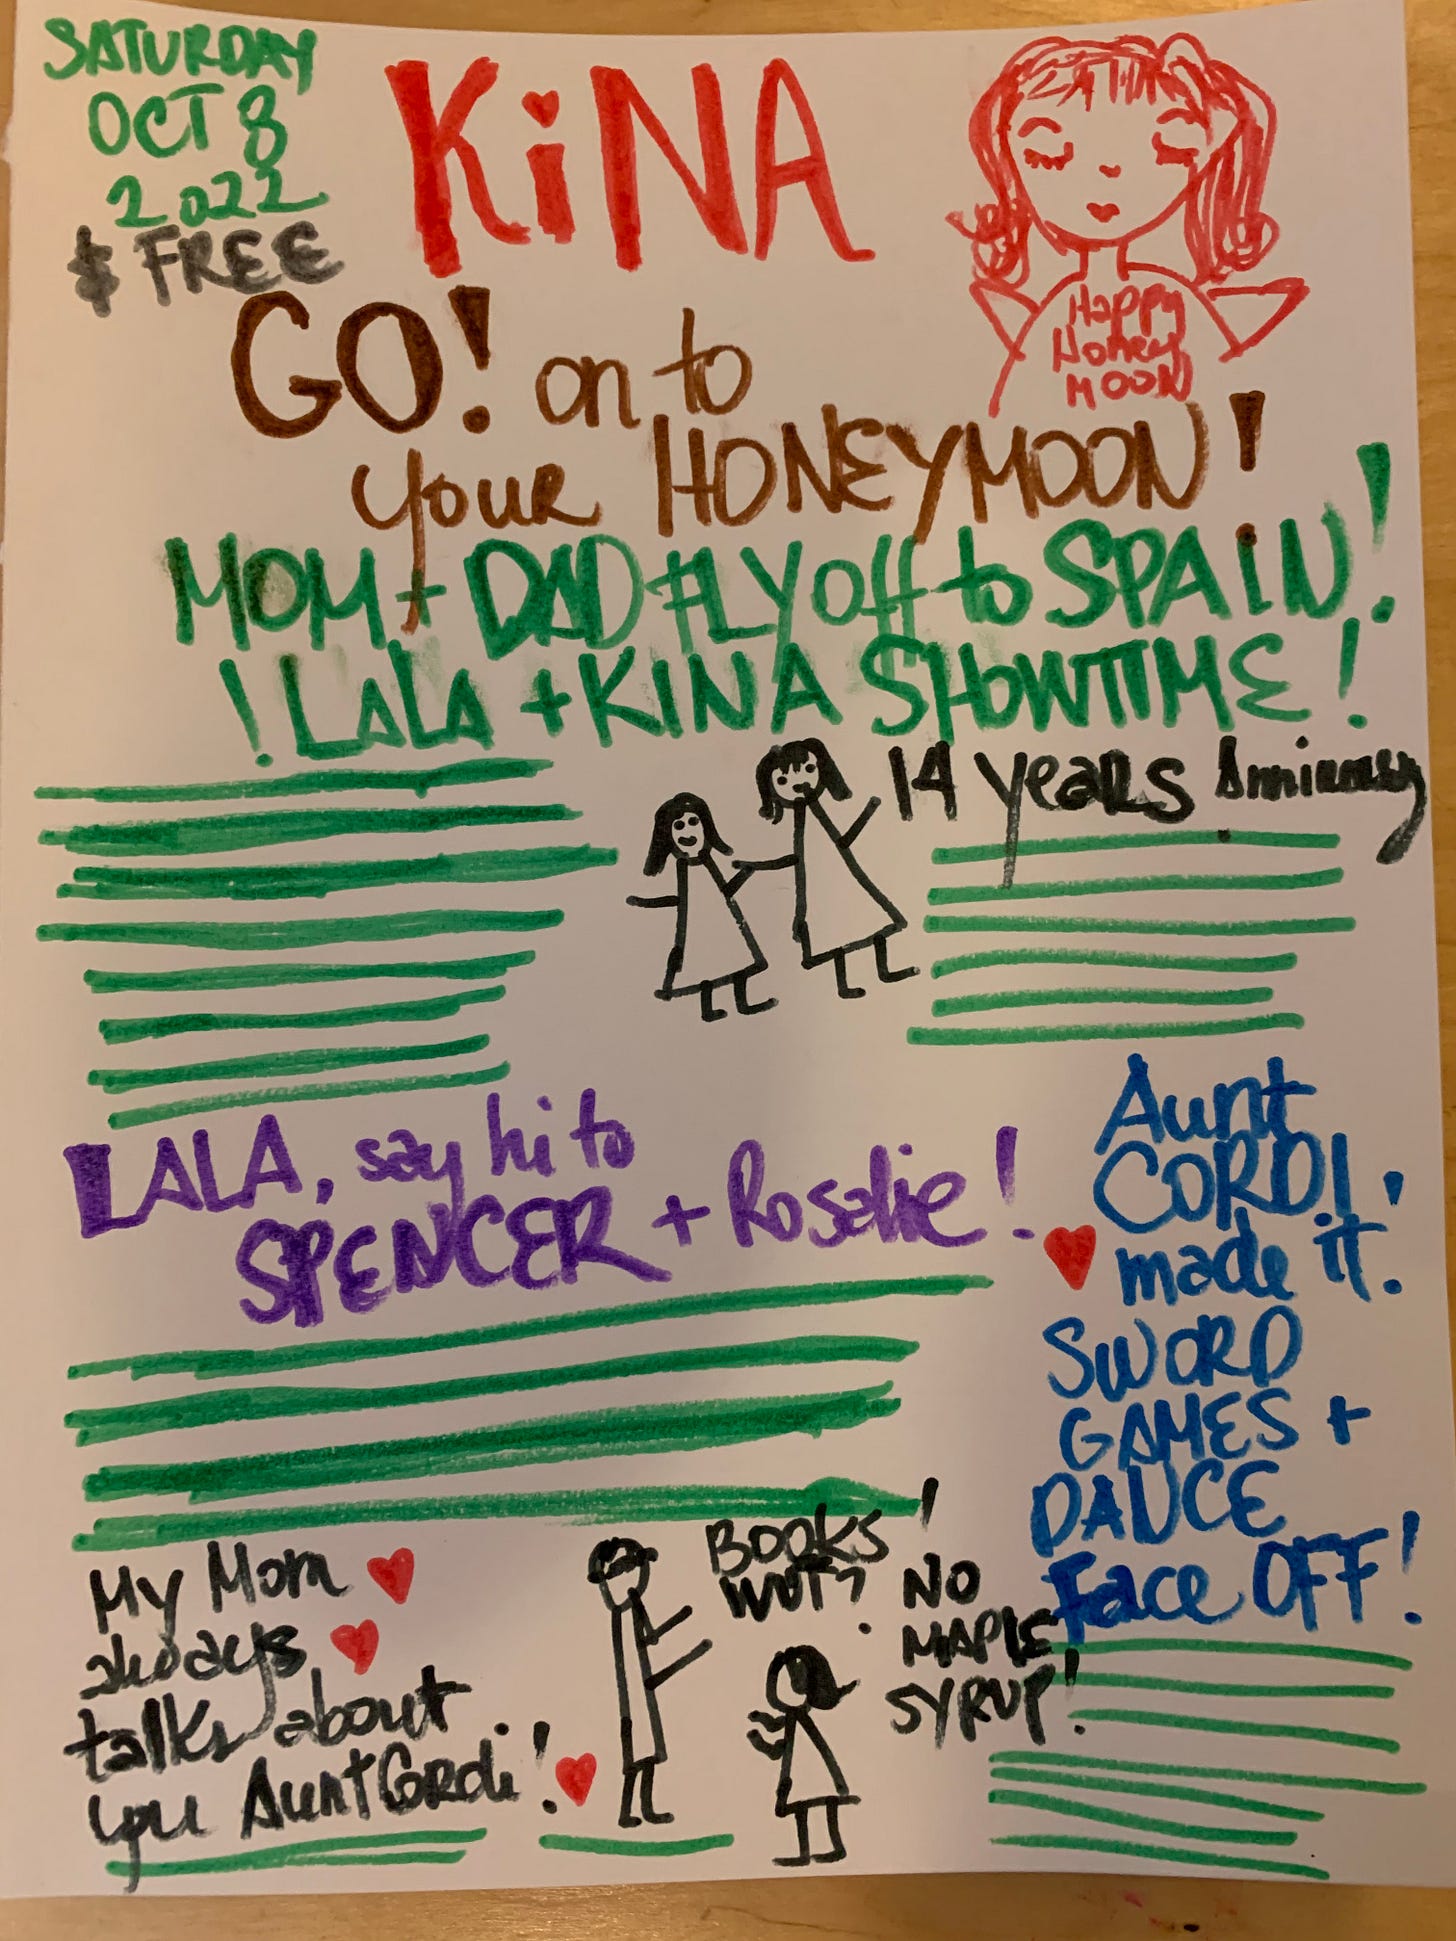 SATURDAY
OCT 8
2022
$ FREE
KiNA
Happy
Honey
MOON
GO! on to
your HONEYMOON!
MOM + DAD FLY off to SPAIN!
! LALA + KINA SHOWTIME!
14 years
LALA, say hi to
SPENCER + Rosalie!
Aunt
CORDI
made it!
SWORD
GAMES +
DANCE
Face OFF!
My Mom
always
talks about
you Aunt Cordi!
BOOKS!
WUT?
NO
MAPLE
SYRUP!